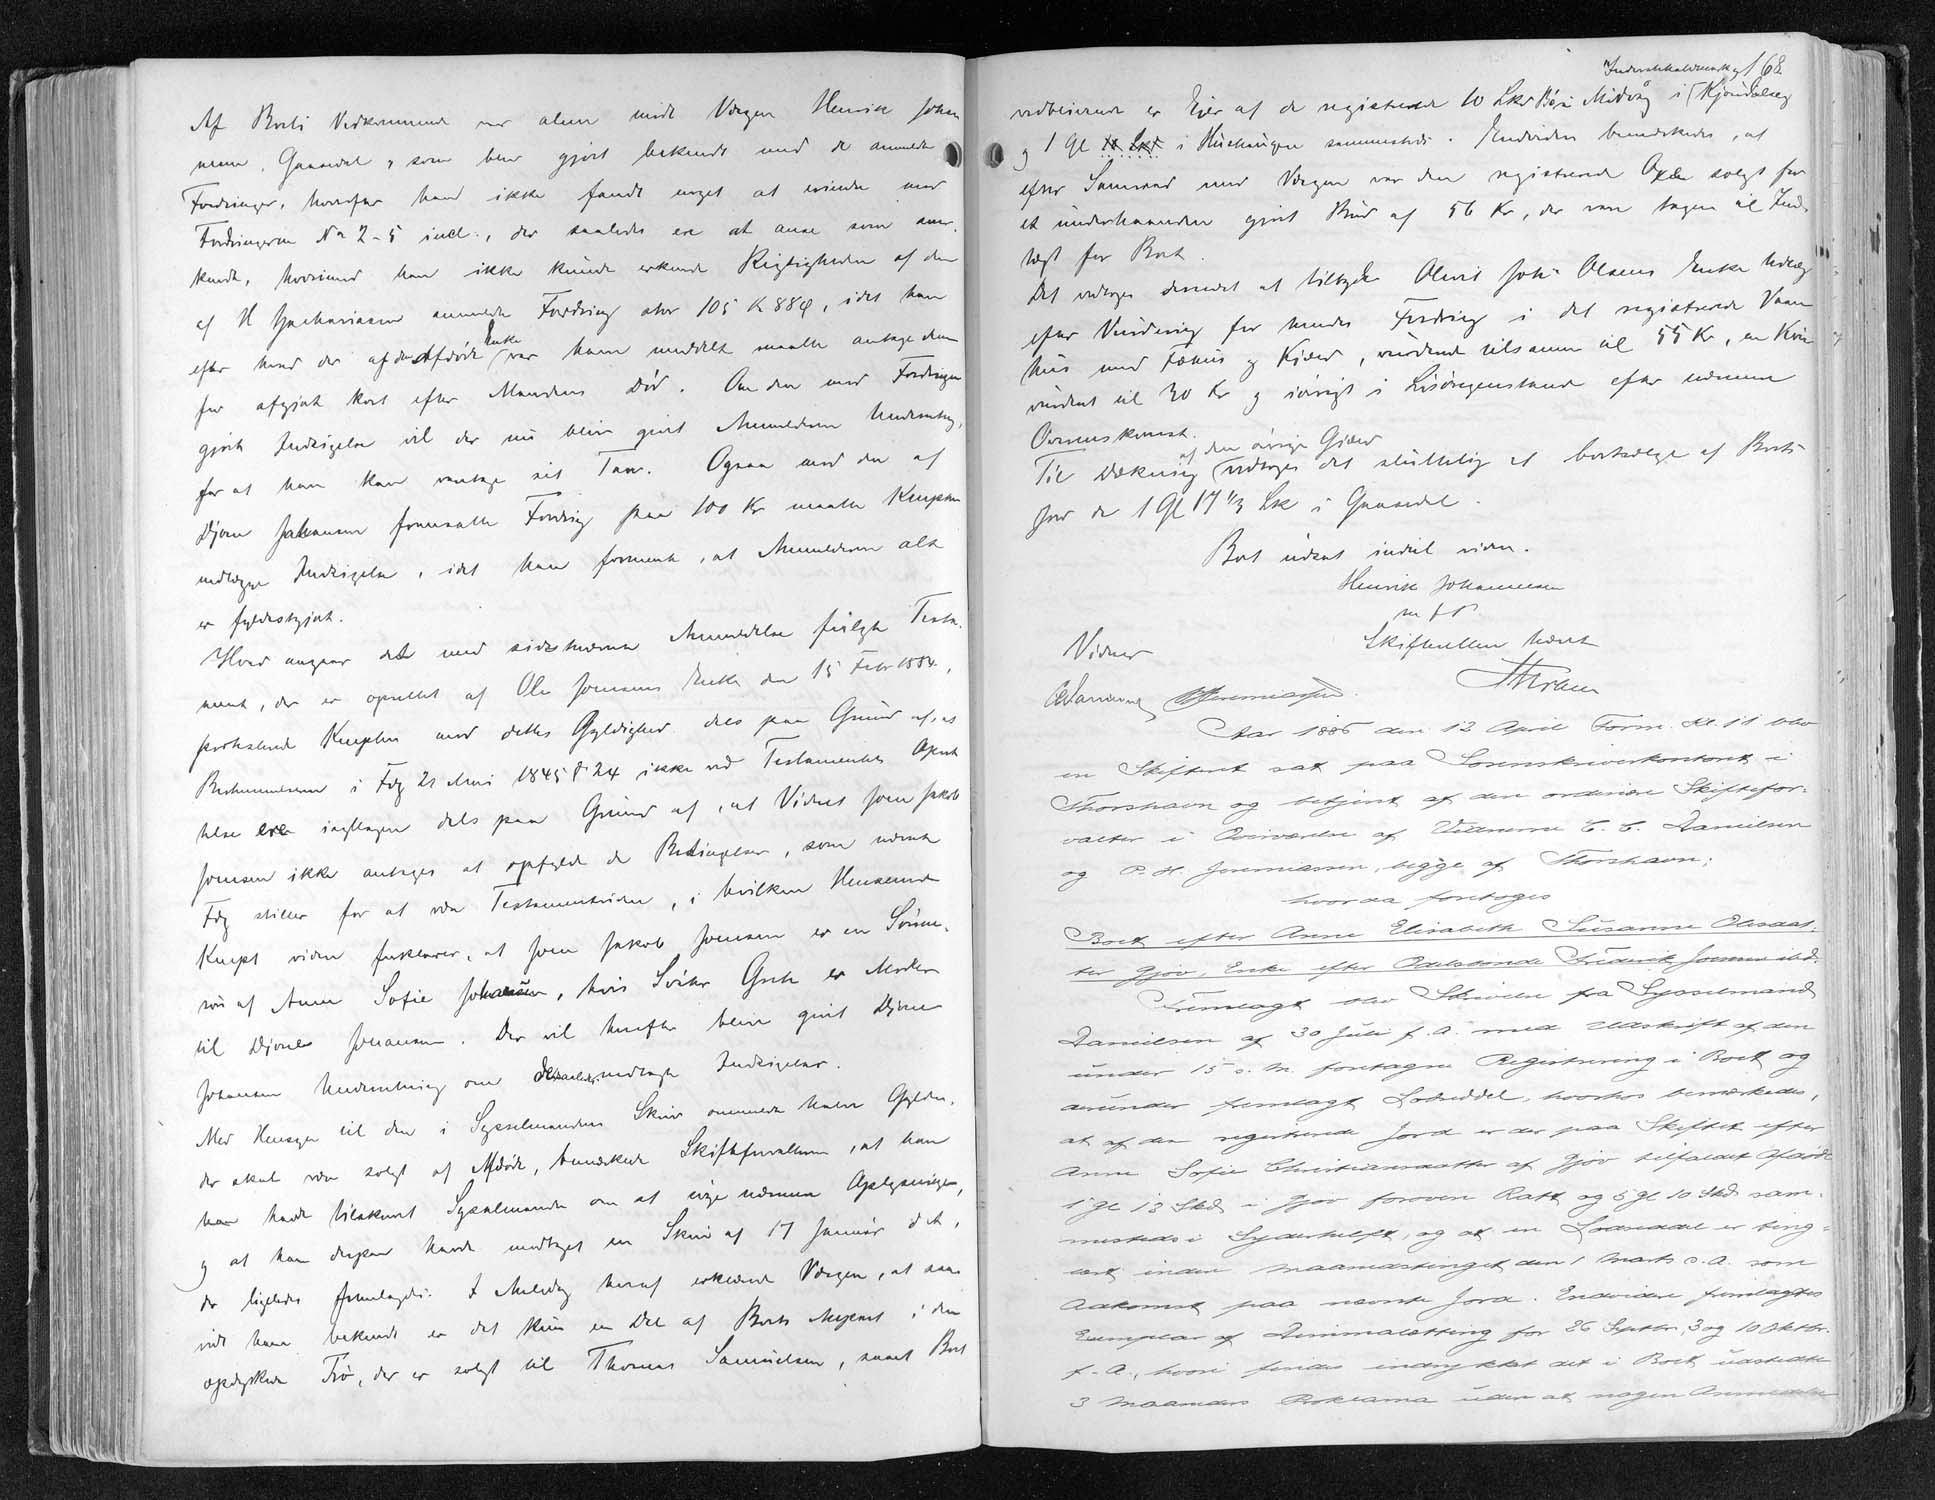 Af Boets Vedkommende var alene mødt Værgen Henrik Johan
nesen, Gaasedal, som blev gjort bekendt med de anmeldte
Fordringer, hvorfor han ikke fandt noget at erindre mod
Fordringerne No 2-5 incl., der saaledes ere at anse som aner-
kendte, hvorimod han ikke kunde erkende Rigtigheden af den
af H Zachariasen anmeldte Fordring stor 105 K 88 Ø, idet han
efter hvad der af den Afdøde Enke var ham meddelt maatte antage den
for afgjort kort efter Mandens Død. Om den mod Fordringen
gjorte Indsigelse vil der nu blive givet Anmelderen Underretning,
for at han kan varetage sit Tarv. Ogsaa mod den af
Djone Johansen fremsatte Fordring paa 100 Kr maatte Kompten
nedlægge Indsigelse, idet han formente, at Anmelderen alt
er fyldestgjort.
Hvad angaar det med sidstnævnte Anmeldelse fulgte Testa-
ment, der er oprettet af Ole Joensens Enke den 15 Febr 1884,
protesterede Komptn mod dettes Gyldighed dels paa Grund af, at
Bestemmelserne i Fdg 21 Mai 1845 § 24 ikke ved Testamentets Opret
telse ere iagttagne dels paa Grund af, at Vidnet Joen Jakob
Joensen ikke antages at opfylde de Betingelser, som nævnte
Fdg stiller for at være Testamentsvidne, i hvilken Henseende
Kompt videre forklarer, at Joen Jakob Joensen er en Sønne-
søn af Anna Sofie Johansen, hvis Søster Grete er Moder
til Djone Johansen. Der vil herefter blive givet Djone
Johansen Underretning om de saaledes nedlagte Indsigelser.
Med Hensyn til den i Sysselmandens Skriv ommeldte halve Gylden,
der skal være solgt af Afdøde, bemærkede Skifteforvalteren, at han
han havde tilskrevet Sysselmanden om at give nærmere Oplysninger,
og at han derpaa havde modtaget en Skriv af 17 Januar d. A.,
der ligeledes fremlagdes. I Anledng heraf erklærede Værgen, at saa-
vidt ham bekendt er det kun en Del af Boets Anpart i den
opdyrkede Trø, der er solgt til Thomas Samuelsen, samt Boet
168
vedblivende er Ejer af de registrerede 10 Lkr Bøur Midvaag i
og 1 Gl i Hushaugen sammesteds. Endvidere bemærkedes, at
efter Samraad med Værgen var den registrerede Oxe solgt for
et underhaanden gjort Bud af 56 Kr, der var tagen til Ind-
tægt for Boet.
Det vedtoges dernæst at tilbyde Olevit Johs Olsens Enke Udlæg
efter Vurdering for hendes Fordring i det registrerede Vaan
hus med Fæhus og Kjæld, vurderede tilsammen til 55 Kr, en Kvie
vurderet til 30 Kr og iøvrigt i Løsøregenstande efter nærmere
Overenskomst.
Til Dækning af den øvrige Gjæld vedtoges det sluttelig at bortsælge af Boets
Jord de 1 Gl 17 1/3 Sk i Gaasedal.
Boet udsat indtil videre.
Henrik Johannesen
m f P
Vidner
Skifteretten hævet
CDanielsen PJeremiassen
Aar 1886 den 12 April Form. Kl. 11 blev
en Skifteret sat paa Sorenskriverkontoret i
Thorshavn og betjent af den ordinære Skiftefor-
valter i Overværelse af Vidnerne C. C. Danielsen
og P. H. Jeremiassen, begge af Thorshavn;
hvorda foretoges
Boet efter Anne Elisabeth Susanne Olesdat-
ter Gjov, Enke efter Odelsbonde Frederik Joensen ibd.
Fremlagt blev Skrivelse fra Sysselmand
Danielsen af 30 Juli f. A. med Udskrift af den
under 15 s. M. foretagne Registrering i Boet og
derunder fremlagt Lodseddel, hvorhos bemærkedes,
at af den registrerede Jord er der paa Skiftet efter
Anne Sofie Christiansdatter af Gjov tilfaldet Afdøde
1 Gl 13 Skd i Gjov foroven Ratt og 5 Gl 10 Skd sam-
mesteds i Syderhelft, og at en Lodseddel er ting-
læst inden Maanedstinget den 1 Marts s. A. som
Adkomst paa nævnte Jord. Endvidere fremlagdes
Exemplar af Dimmalætting for 26 Septbr, 3 og 10 Oktbr.
f. A., hvori findes indrykket det i Boet udstedte
3 Maaneders Proklama uden at nogen Anmeldelse